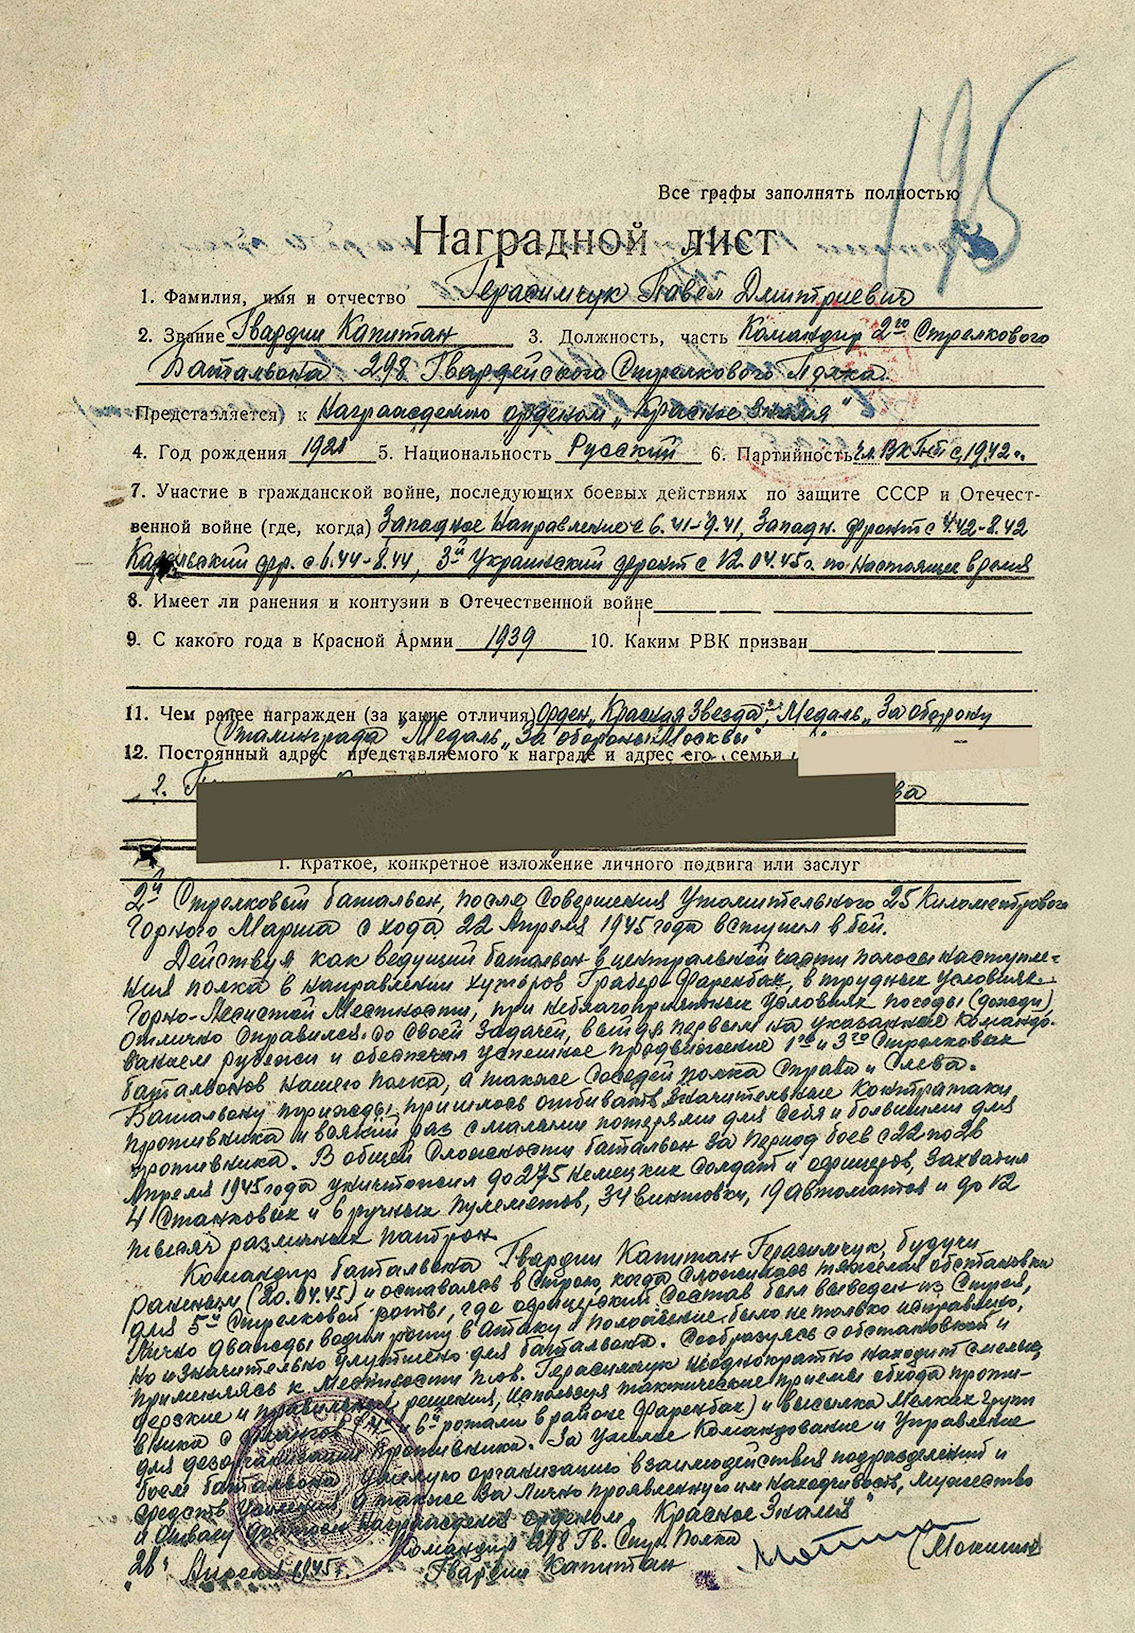 195
Все графы заполнять полностью
Наградной лист
1. Фамилия, имя и отчество Герасимчук Павел Дмитриевич
2. Звание Гвардии Капитан 3. Должность, часть Командир 2го Стрелкового
Батальона 298 Гвардейского Стрелкового Полка.
Представляется к Награждению орденом „Красное Знамя"
4. Год рождения 1921 5. Национальность Русский 6. Партийность Чл. ВКП(б) с 1942 г.
7. Участие в гражданской войне, последующих боевых действиях по защите СССР и Отечест-
венной войне (где, когда) Западное Направление с 6.41-9.41, Западн. фронт с 4.42-8.42
Карельский фр. с 6.44-8.44, 3й Украинский фронт с 12.04.45г. по Настоящее время
8. Имеет ли ранения и контузии в Отечественной войне
9. С какого года в Красной Армии 1939 10. Каким РВК призван
11. Чем ранее награжден (за какие отличия) Орден „Красная Звезда", Медаль „За оборону
Сталинграда Медаль „За оборону Москвы"
12. Постоянный адрес представляемого к награде и адрес его семьи
2.
ва
I. Краткое, конкретное изложение личного подвига или заслуг
2й Стрелковый батальон, после Совершения Утомительного 25 Километрового
Горного Марша с хода 22 Апреля 1945 года вступил в бой.
Действуя как ведущий батальон в центральной части полосы наступле-
ния полка в направлении хуторов Грабер, Фаренбах, в трудных условиях
Горно-Лесистой Местности, при неблагоприятных условиях погоды (дожди),
Отлично справился со своей Задачей, выйдя первым на указанные командо-
ванием рубежи и обеспечил успешное продвижение 1го и 3го Стрелковых
батальонов нашего полка, а также Соседей полка Справа и Слева.
Батальону трижды пришлось отбивать значительные контратаки
противника и всякий раз с малыми потерями для себя и большими для
противника. В общей Сложности батальон за период боев с 22 по 26
Апреля 1945 года уничтожил до 275 немецких Солдат и офицеров, Захватил
4 Станковых и 6 ручных пулеметов, 34 винтовки, 19 автоматов и до 12
тысяч различных патрон.
Командир батальона Гвардии Капитан Герасимчук, будучи
раненым (20.04.45) и оставаясь в Строю, когда Сложилась тяжелая обстановка
для 5й Стрелковой роты, где офицерский Состав был выведен из Строя,
Лично дважды водил роту в атаку и положение было не только исправлено,
но и Значительно улучшено для батальона. Сообразуясь с обстановкой и
применяясь к Местности тов. Герасимчук неоднократно находил смелые,
дерзкие и правильные решения, используя тактические приемы обхода проти-
вника с флангов 4й и 6й ротами в районе Фаренбах) и высылка Мелких групп
для дезорганизации противника. За Умелое Командование и Управление
боем батальона умелую организацию взаимодействия подразделений и
средств усиления, а также за Лично проявленную им находчивость, мужество
и отвагу достоин Награждения орденом „Красное Знамя"
Командир 298 Гв. Стр. Полка
„26" Апреля 1945г. Гвардии Капитан